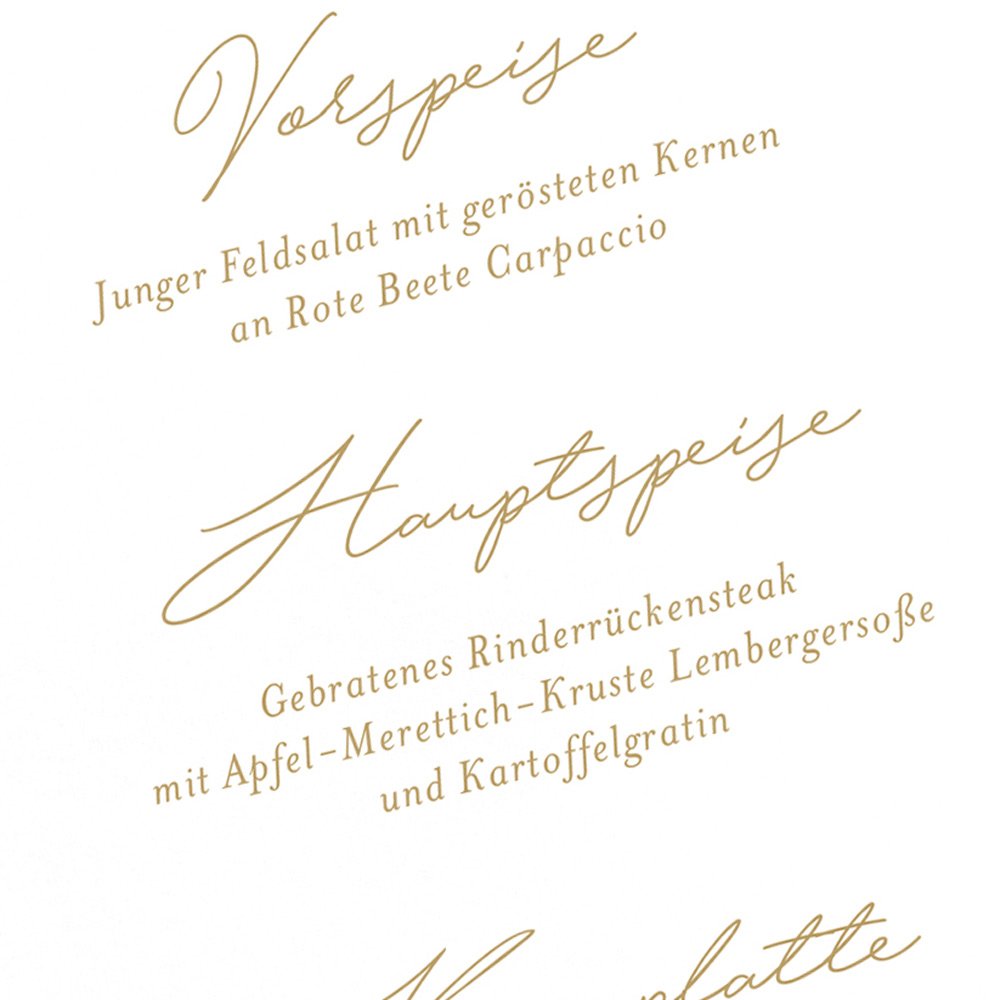 Vorspeise
Junger Feldsalat mit gerösteten Kernen
an Rote Beete Carpaccio
Hauptspeise
Gebratenes Rinderrückensteak
mit Apfel-Merettich-Kruste Lembergersoße
und Kartoffelgratin